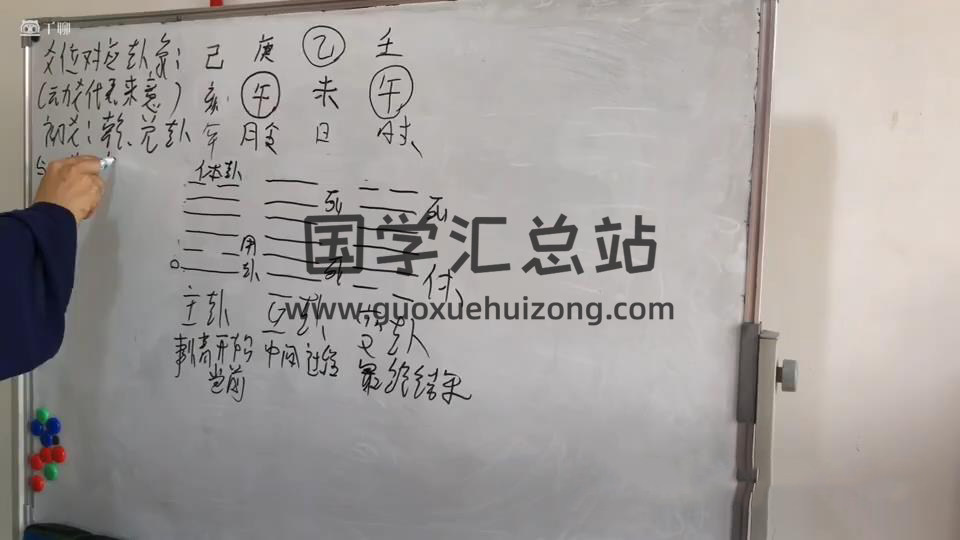 丁聊
爻位对应卦象：
（动爻代表来意）
初爻：乾、兑卦
己 庚 乙 壬
亥 午 未 午
年 月令 日 时
体卦
死 死
用卦
死 付
主卦 互卦 变卦
事情开始 当前
中间过程
最终结果
国学汇总站
www.guoxuehuizong.com